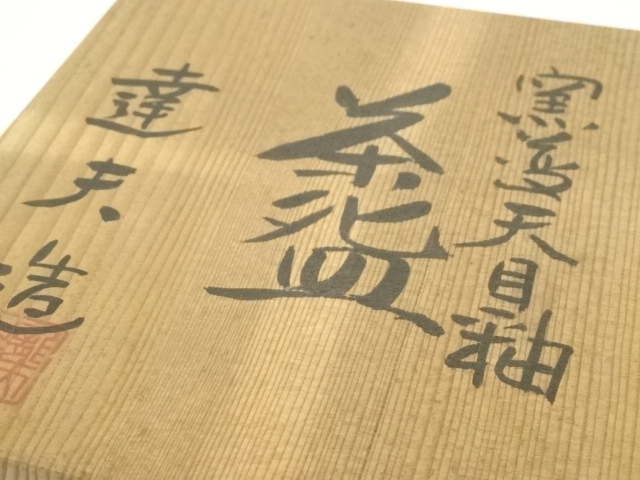 窯変天目釉
茶盌
達夫造